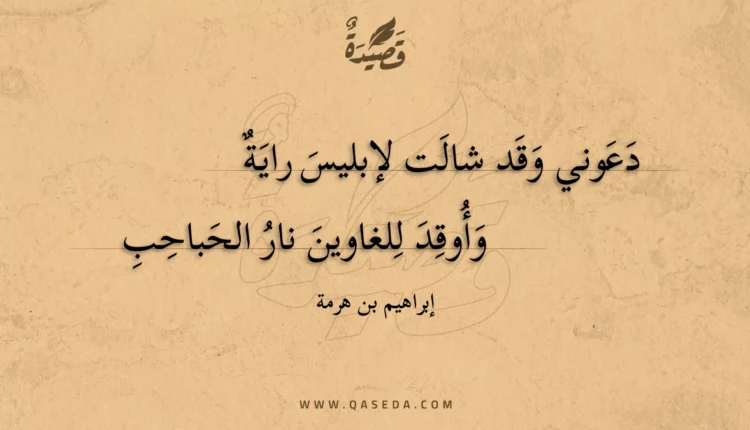 قَصِيْدَةٌ
دَعَوني وَقَد شالَت لإبليسَ رايَةٌ
وَأُوقِدَ لِلغاوينَ نارُ الحَباحِبِ
إبراهيم بن هرمة
WWW.QASEDA.COM